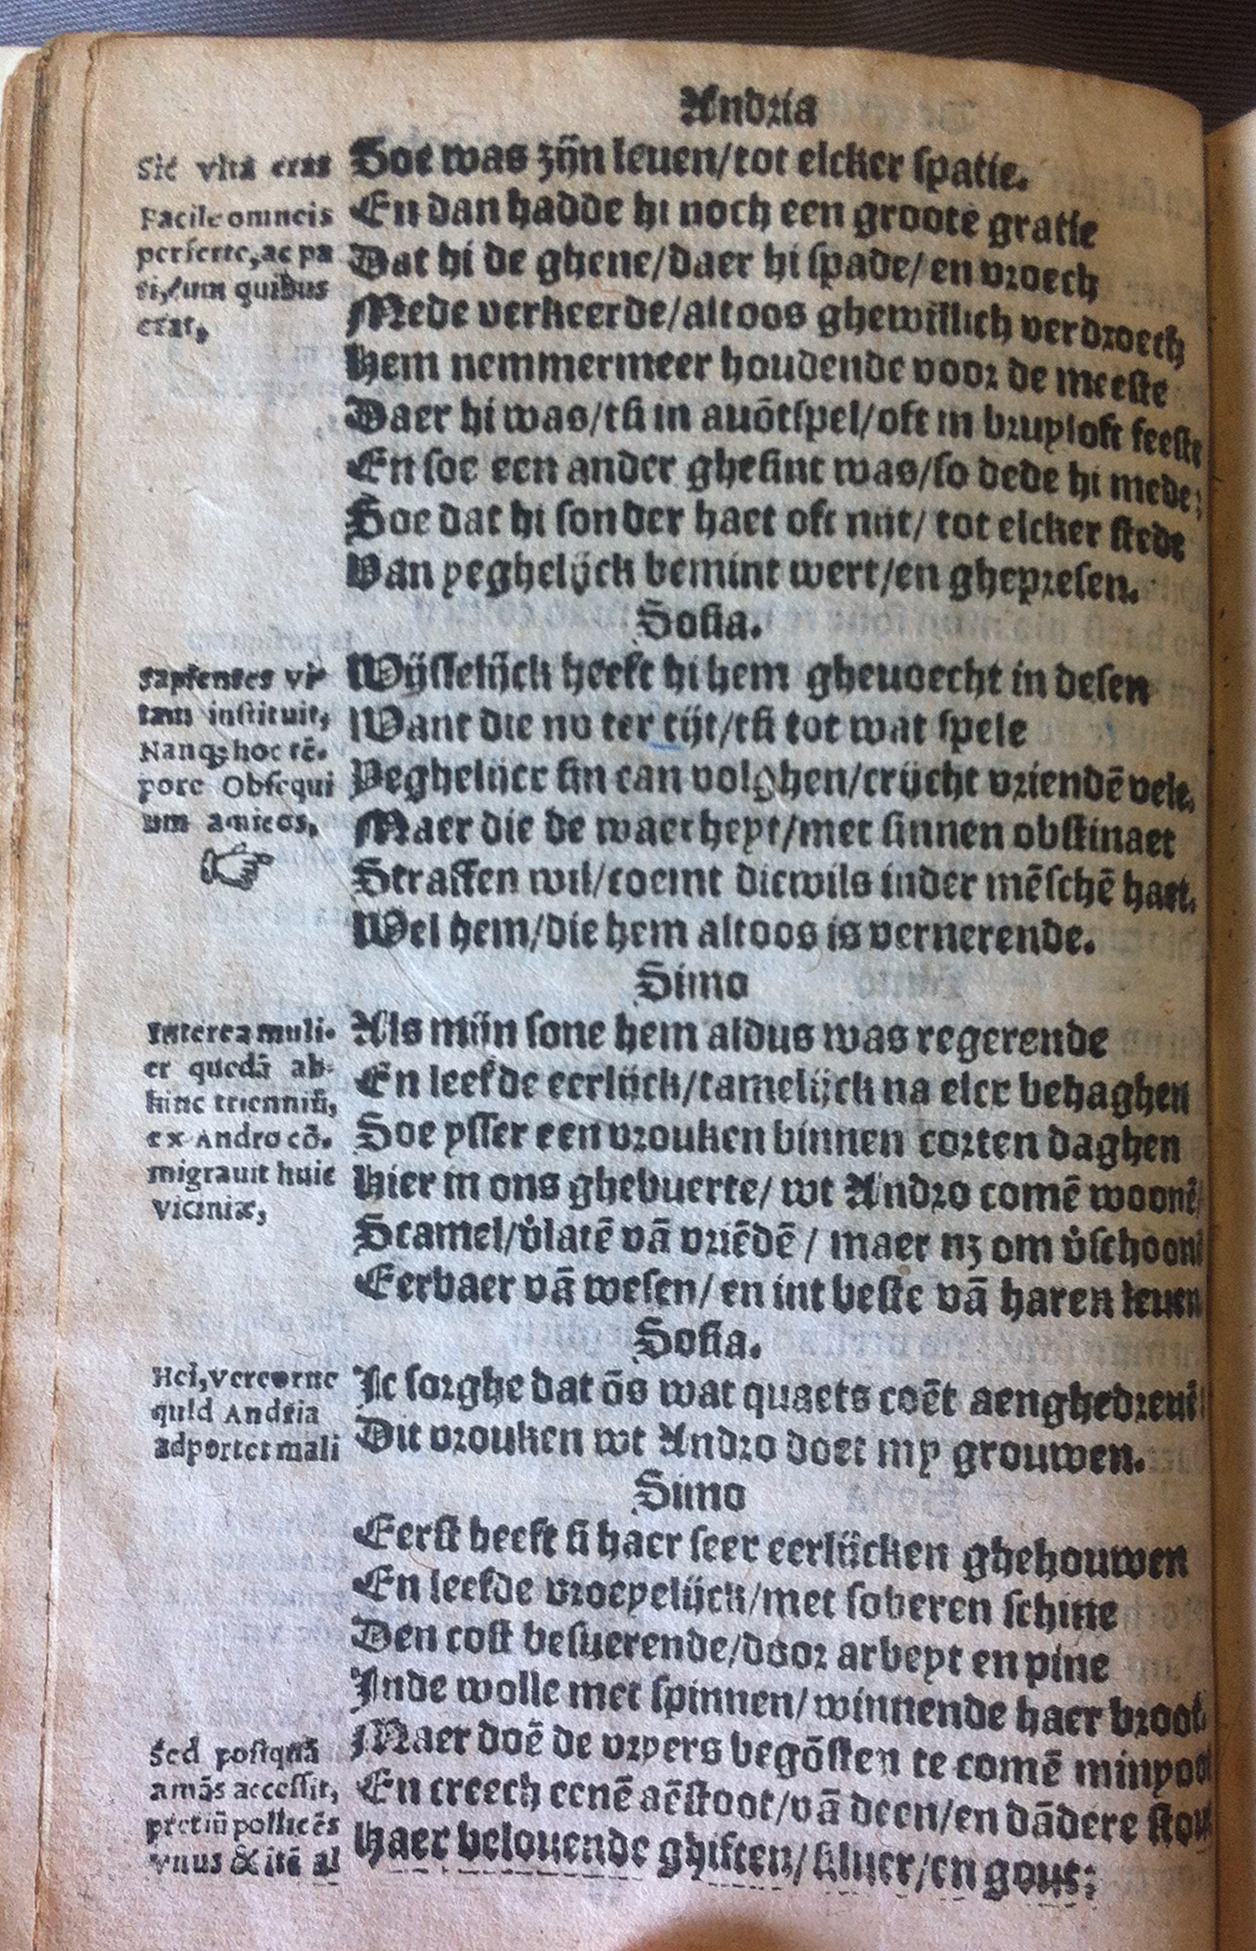 Andria
Sic vita erat
Soe was zijn leuen/tot elcker spatie.
Facile omneis
perferre, ac pa
ti, cum quibus
erat,
En dan hadde hi noch een groote gratie
Dat hi de ghene/daer hi spade/en vroech
Mede verkeerde/altoos ghewillich verdroech
Hem nemmermeer houdende voor de meeste
Daer hi was/tsi in auōtspel/oft in bruyloft feeste
En soe een ander ghesint was/so dede hi mede:
Soe dat hi sonder haet oft nijt/ tot elcker stede
Van yeghelijck bemint wert/en ghepresen.
Sosia.
Sapientes vi-
tam instituit,
Nanq; hoc tē-
pore Obsequi
um amicos,
☞
Wijsselijck heeft hi hem gheuoecht in desen
Want die nv ter tijt/tsi tot wat spele
Yeghelijcx sin can volghen/crijcht vriendē vele,
Maer die de waerheyt/met sinnen obstinaet
Straffen wil/coemt dicwils inder mēschē haet.
Wel hem/die hem altoos is vernerende.
Simo
Interea muli-
er quedā ab-
hinc trienniū,
ex Andro cō-
migrauit huic
viciniæ,
Als mijn sone hem aldus was regerende
En leefde eerlijck/tamelijck na elcx behaghen
Soe ysser een vrouken binnen corten daghen
Hier in ons ghebuerte/ wt Andro comē woonē/
Scamel/v̊latē vā vriēdē/ maer nz om v̊schoonē
Eerbaer vā wesen/en int beste vā haren leuen
Sosia.
Hei, vereor ne
quid Andria
adportet mali
Ic sorghe dat ōs wat quaets coēt aenghedreuē
Dit vrouken wt Andro doet my grouwen.
Simo
Eerst heeft si haer seer eerlijcken ghehouwen
En leefde vroeyelijck/met soberen schijne
Den cost besuerende/door arbeyt en pine
Inde wolle met spinnen/winnende haer broot.
Sed postquā
amās accessit,
pretiū pollicēs
vnus & itē al
Maer doē de vryers begōsten te comē minyoot
En creech eenē aēstoot/vā deen/en dādere stout
Haer belouende ghiften/siluer/en gout: